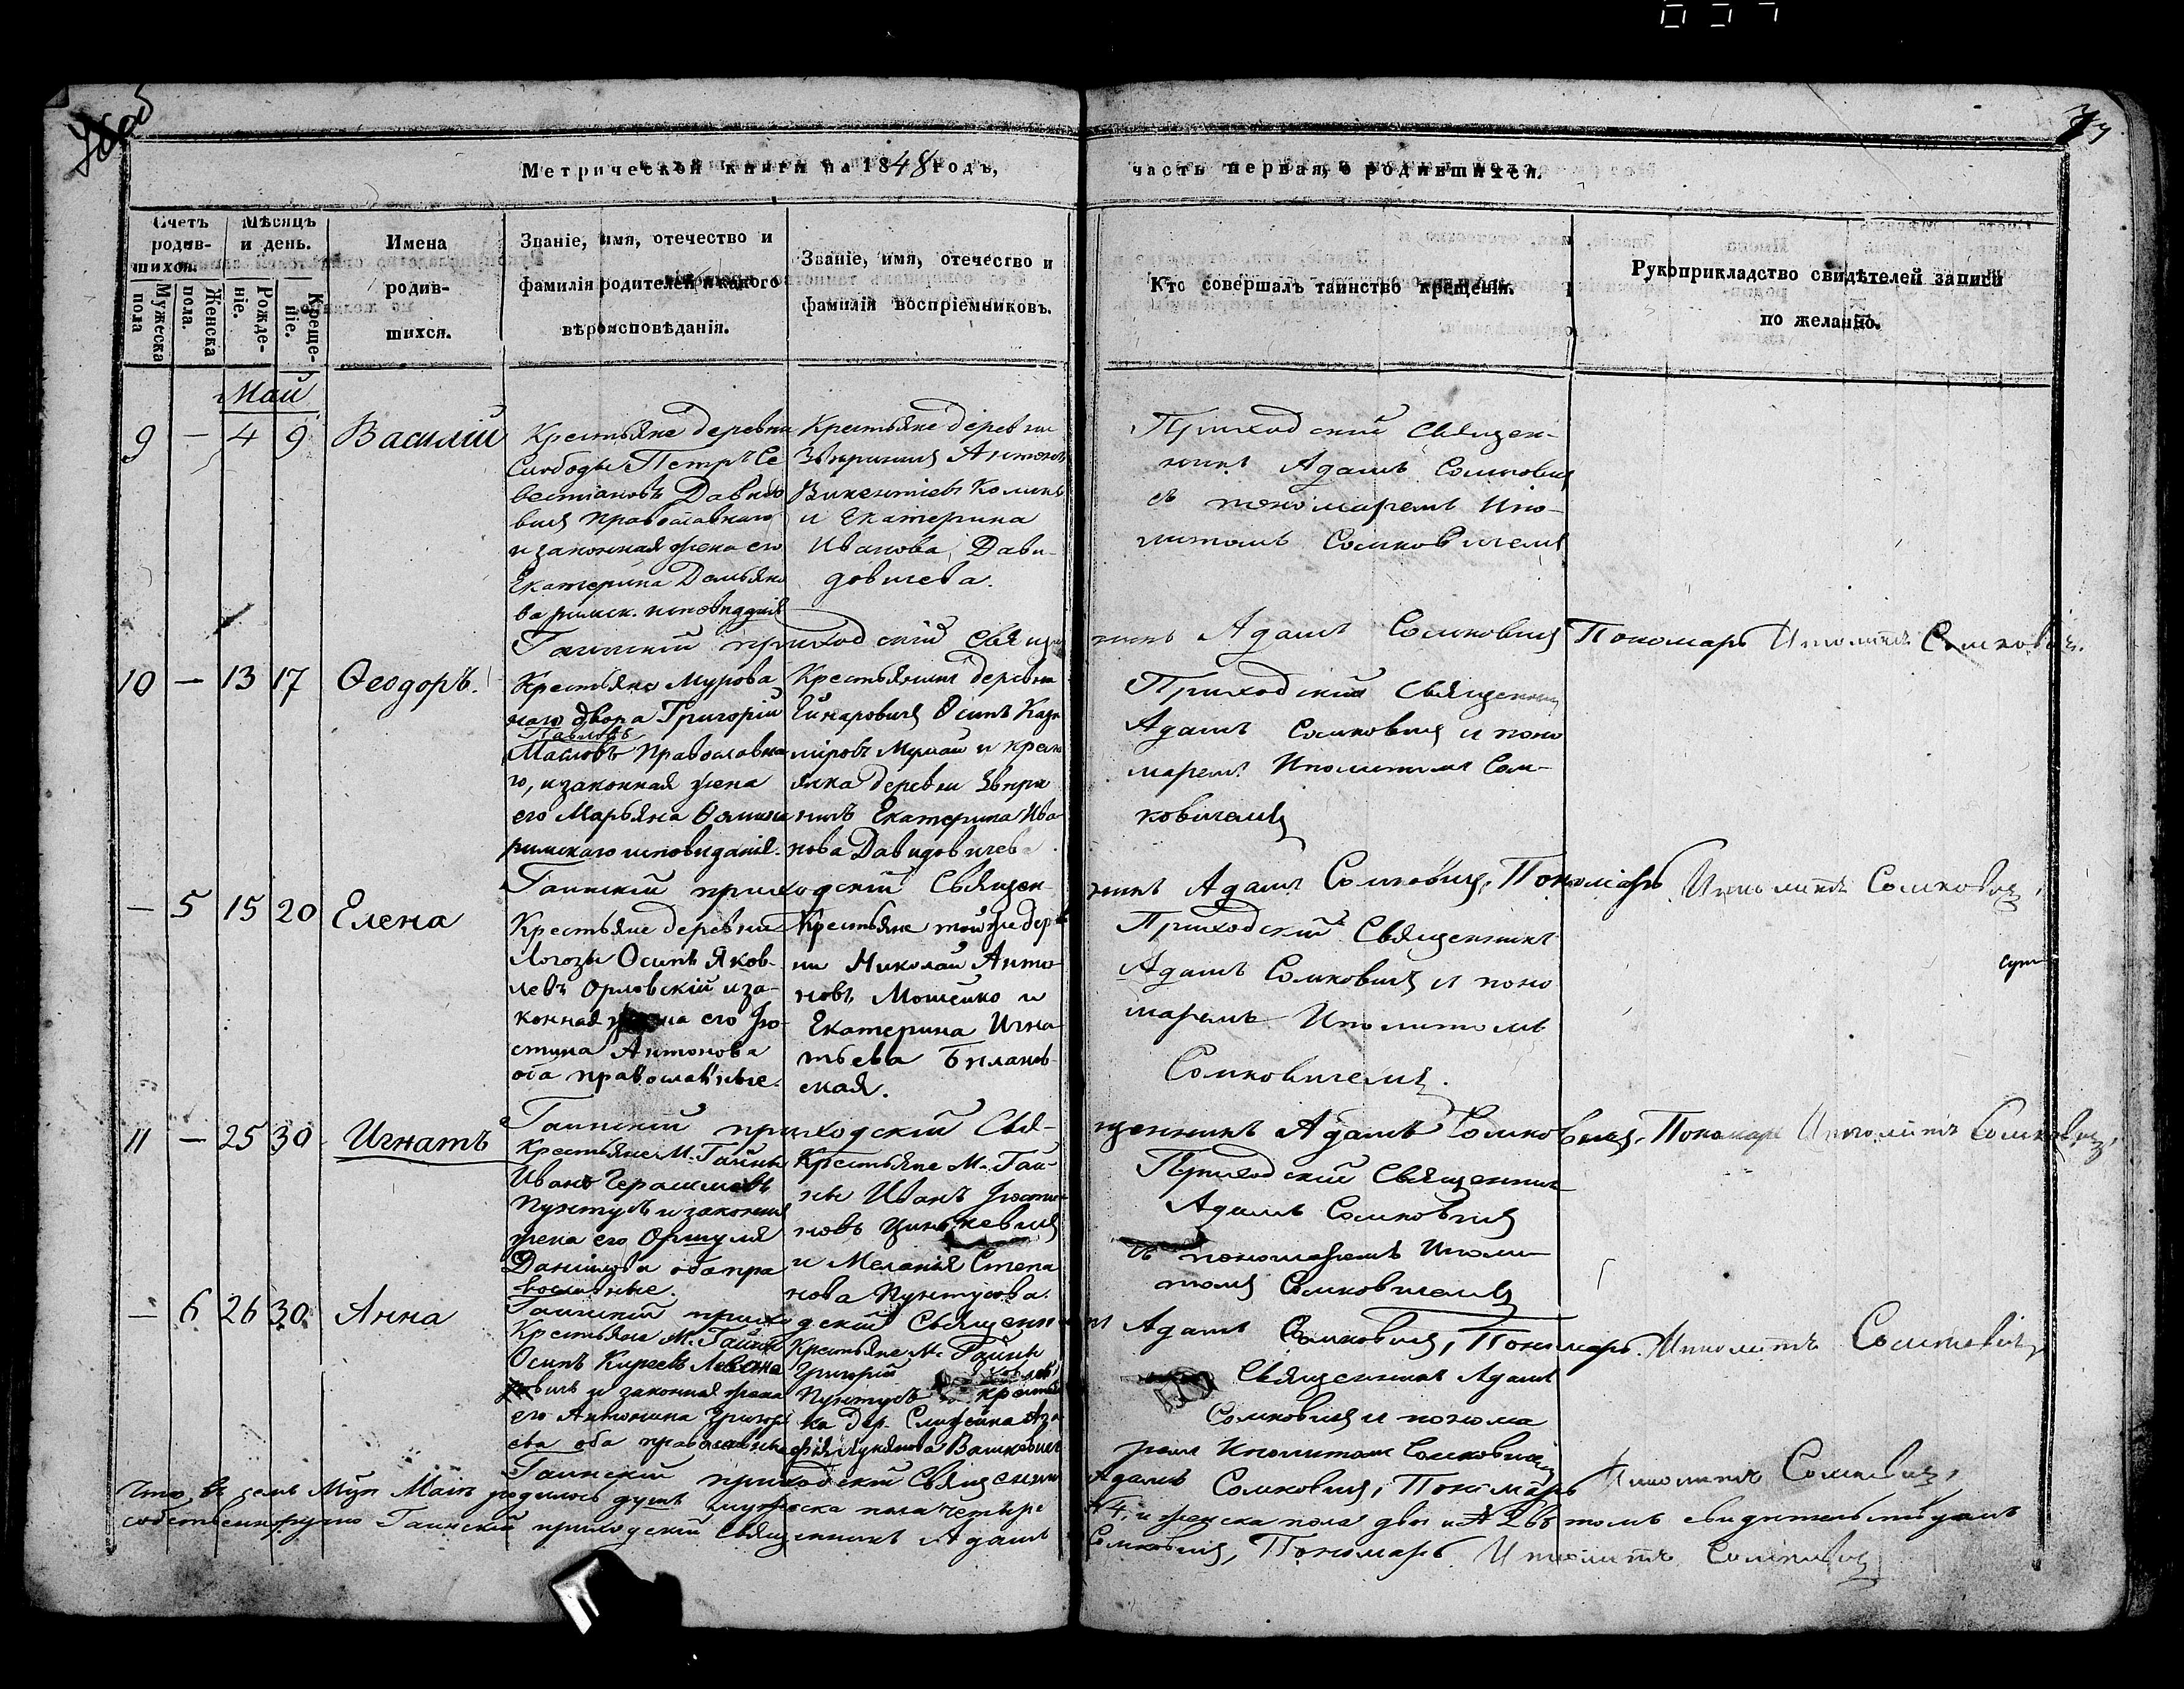 Метрической книги на 1848 годъ,
часть первая, о родившихся.
Счетъ родив-шихся.
Мужеска пола
Женска пола.
Мѣсяцъ и день.
Рожде-ніе.
Креще-ніе.
Имена
родив-
шихся.
Званіе, имя, отечество и
фамилія родителей и какого
вѣроисповѣданія.
Званіе, имя, отечество и
фамилія воспріемниковъ.
Кто совершалъ таинство крещенія.
Рукоприкладство свидѣтелей записи
по желанію.
Май
9 — 4 9 Василій
Крестьяне деревни
Слободы Петръ Се
вестіановъ Давидо
вичъ православнаго
и законная жена его
Екатерина Демьяно
ва римск. исповѣданія
Крестьяне деревни
Антонъ
Викентіевъ
и Екатерина
Иванова Дави-
довичева.
Приходскій Священ-
никъ Адамъ Сомковичъ
съ пономаремъ Ипо-
литомъ Сомковичемъ
Гаинскій приходскій Священ
никъ Адамъ Сомковичъ Пономарь Иполитъ Сомковичъ.
10 — 13 17 Ѳеодоръ.
Крестьяне Мурова
наго двора Григорій
Павловъ
Масловъ Православна
го, и законная жена
его Марьяна Ѳомина
римскаго исповѣданія.
Крестьянинъ деревни
Осипъ Кази
міровъ и крест
янка деревни
Екатерина Ива
нова Давидовичева.
Приходскій Священникъ
Адамъ Сомковичъ и поно
маремъ Иполитомъ Сом-
ковичемъ
Гаинскій приходскій Священ-
никъ Адамъ Сомковичъ, Пономарь Иполитъ Сомковичъ,
— 5 15 20 Елена
Крестьяне деревни
Логозы Осипъ Яков-
левъ Орловскій и за-
конная жена его Ю-
стина Антонова
оба православные.
Крестьяне той же дерев
ни Николай Анто-
новъ Мошенко и
Екатерина Игна-
тьева
ская.
Приходскій Священникъ
Адамъ Сомковичъ и поно
маремъ Иполитомъ
Сомковичемъ.
Гаинскій приходскій Свя-
щенникъ Адамъ Сомковичъ, Пономарь Иполитъ Сомковичъ,
11 — 25 30 Игнатъ
Крестьяне М. Гайны
Иванъ Герасимовъ
Пунтусъ и законная
жена его Оршуля
Данилова оба пра
вославные.
Крестьяне М. Гай-
ны Иванъ Юсти-
новъ
и Меланія Степа
нова Пунтусова.
Приходскій Священник
Адамъ Сомковичъ
съ пономаремъ Иполи
томъ Сомковичемъ
Гаинскій приходскій Священни
къ Адамъ Сомковичъ, Пономарь Иполитъ Сомковичъ,
— 6 26 30 Анна
Крестьяне М. Гайны
Осипъ
вичъ и законная жена
его Антонина Григорь
ева оба православные
Крестьяне М. Гайны
Григорій
Пунтусъ крестьян
ка дер.
Священникъ Адамъ
Сомковичъ и понома
ремъ Иполитомъ Сомковичемъ
Гаинскій приходскій Священникъ
Адамъ Сомковичъ, Пономарь Иполитъ Сомковичъ,
Что въ семъ Мцѣ Маіѣ родилось душъ мужеска пола четыре
№ 4, и женска пола двѣ и № 2 въ томъ свидетельствуемъ
собственноручно Гаинскій приходскій Священникъ Адамъ
Сомковичъ, Пономарь Иполитъ Сомковичъ